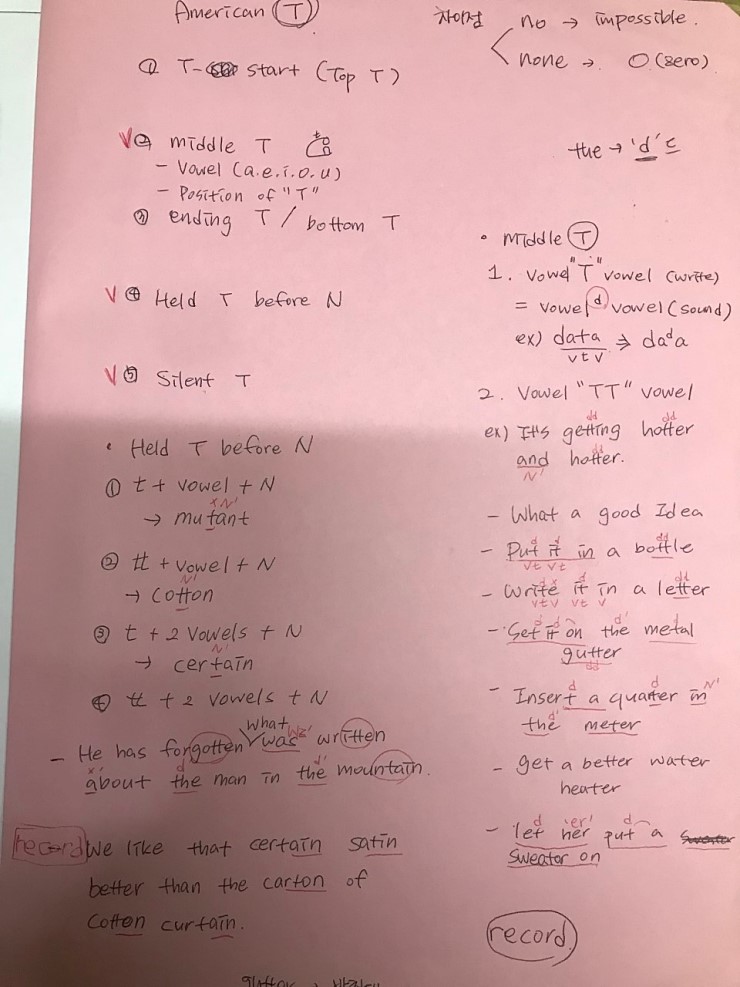 American T
① T- start (Top T)
V② middle T
- Vowel (a.e.i.o.u)
- Position of "T"
③ ending T / bottom T
V④ Held T before N
V⑤ Silent T
• Held T before N
① t + vowel + N
→ mutant
② tt + vowel + N
N'
→ cotton
③ t + 2 vowels + N
N'
→ certain
④ tt + 2 vowels + N
what
- He has forgotten was written
d d'
about the man in the mountain.
record We like that certain satin
better than the carton of
cotten curtain.
차이점
no → impossible.
none → 0 (zero)
the → 'd' 드
• Middle T
1. Vowel "T" vowel (write)
= vowel d vowel (sound)
ex) data ⇒ dada
v t v
2. Vowel "TT" vowel
dd dd
ex) It's getting hotter
dd
and hotter.
N'
- What a good Idea
d d dd
- Put it in a bottle
vt vt
d x d dd
- Write it in a letter
vtv vt v
d' d d'
- Set it on the metal
gutter
dd
d d N'
- Insert a quarter in
d'
the meter
- get a better water
heater
d 'er' d
- let her put a
Sweator on
record